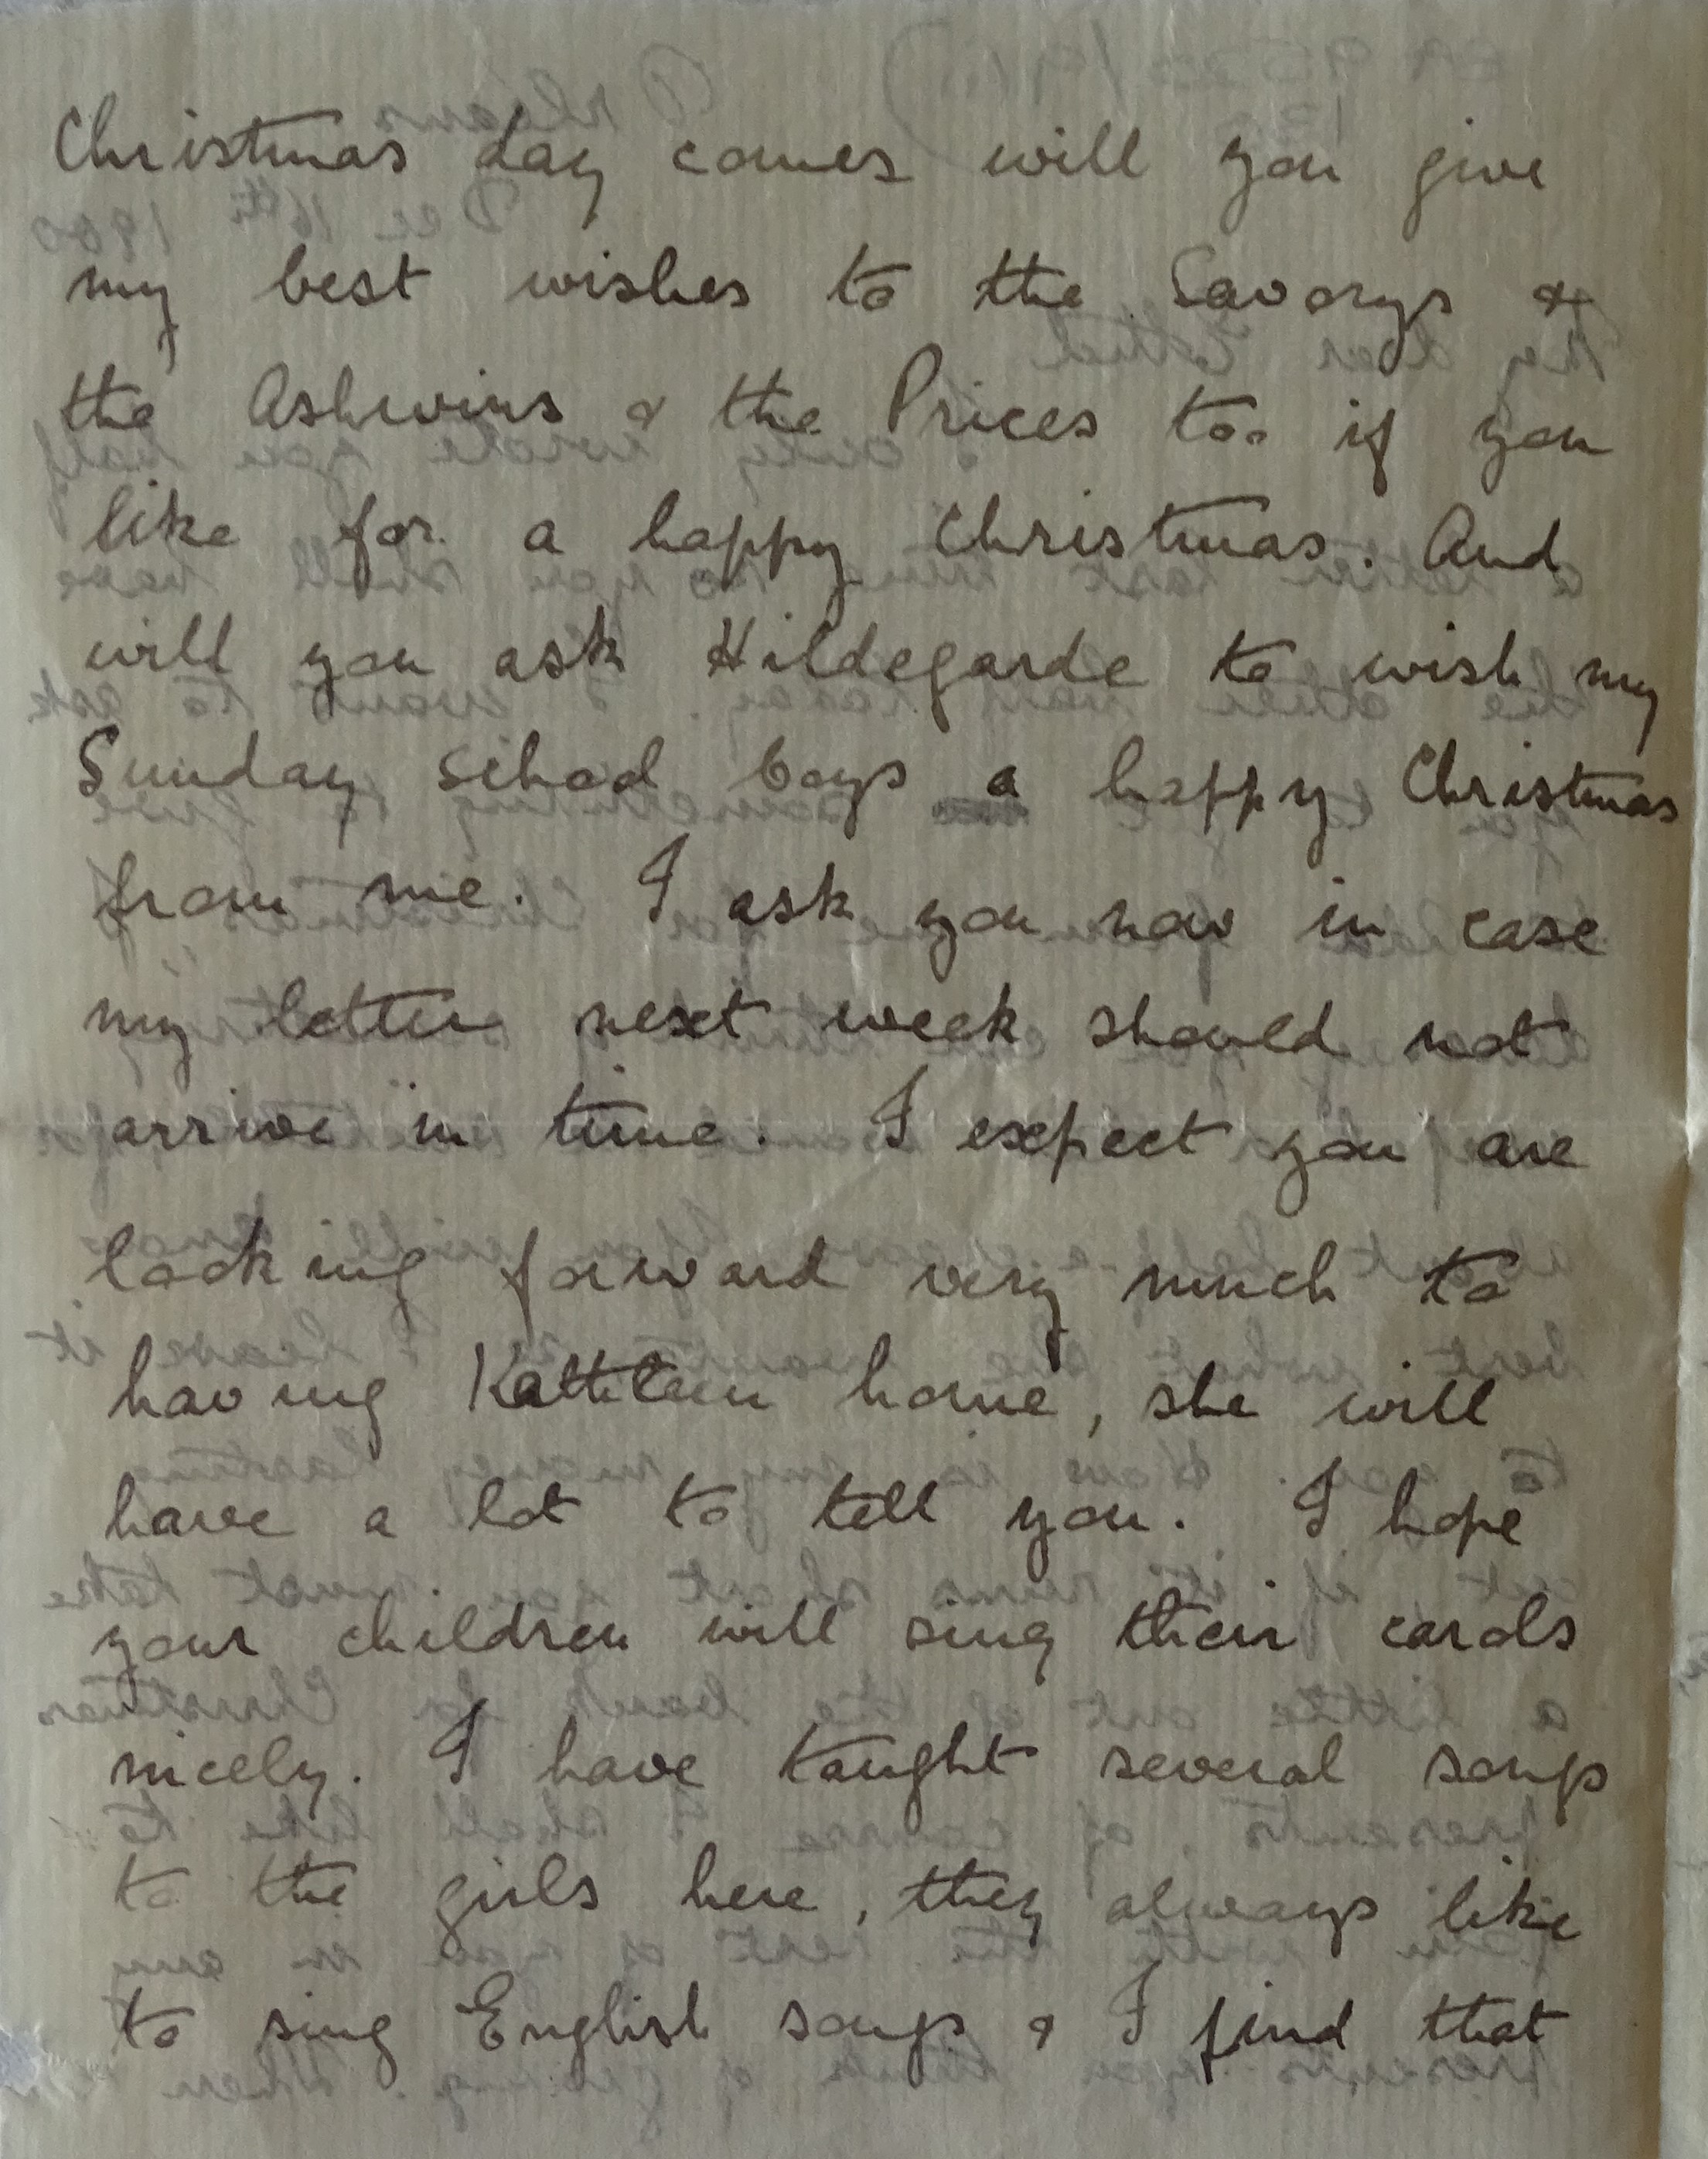 Christmas day comes will you give
my best wishes to the Savorys &
the Ashwins & the Prices too if you
like for a happy Christmas. And
will you ask Hildegarde to wish my
Sunday School boys a happy Christmas
from me. I ask you now in case
my letter next week should not
arrive in time. I expect you are
looking forward very much to
having Kathleen home, she will
have a lot to tell you. I hope
your children will sing their carols
nicely. I have taught several songs
to the girls here, they always like
to sing English songs & I find that